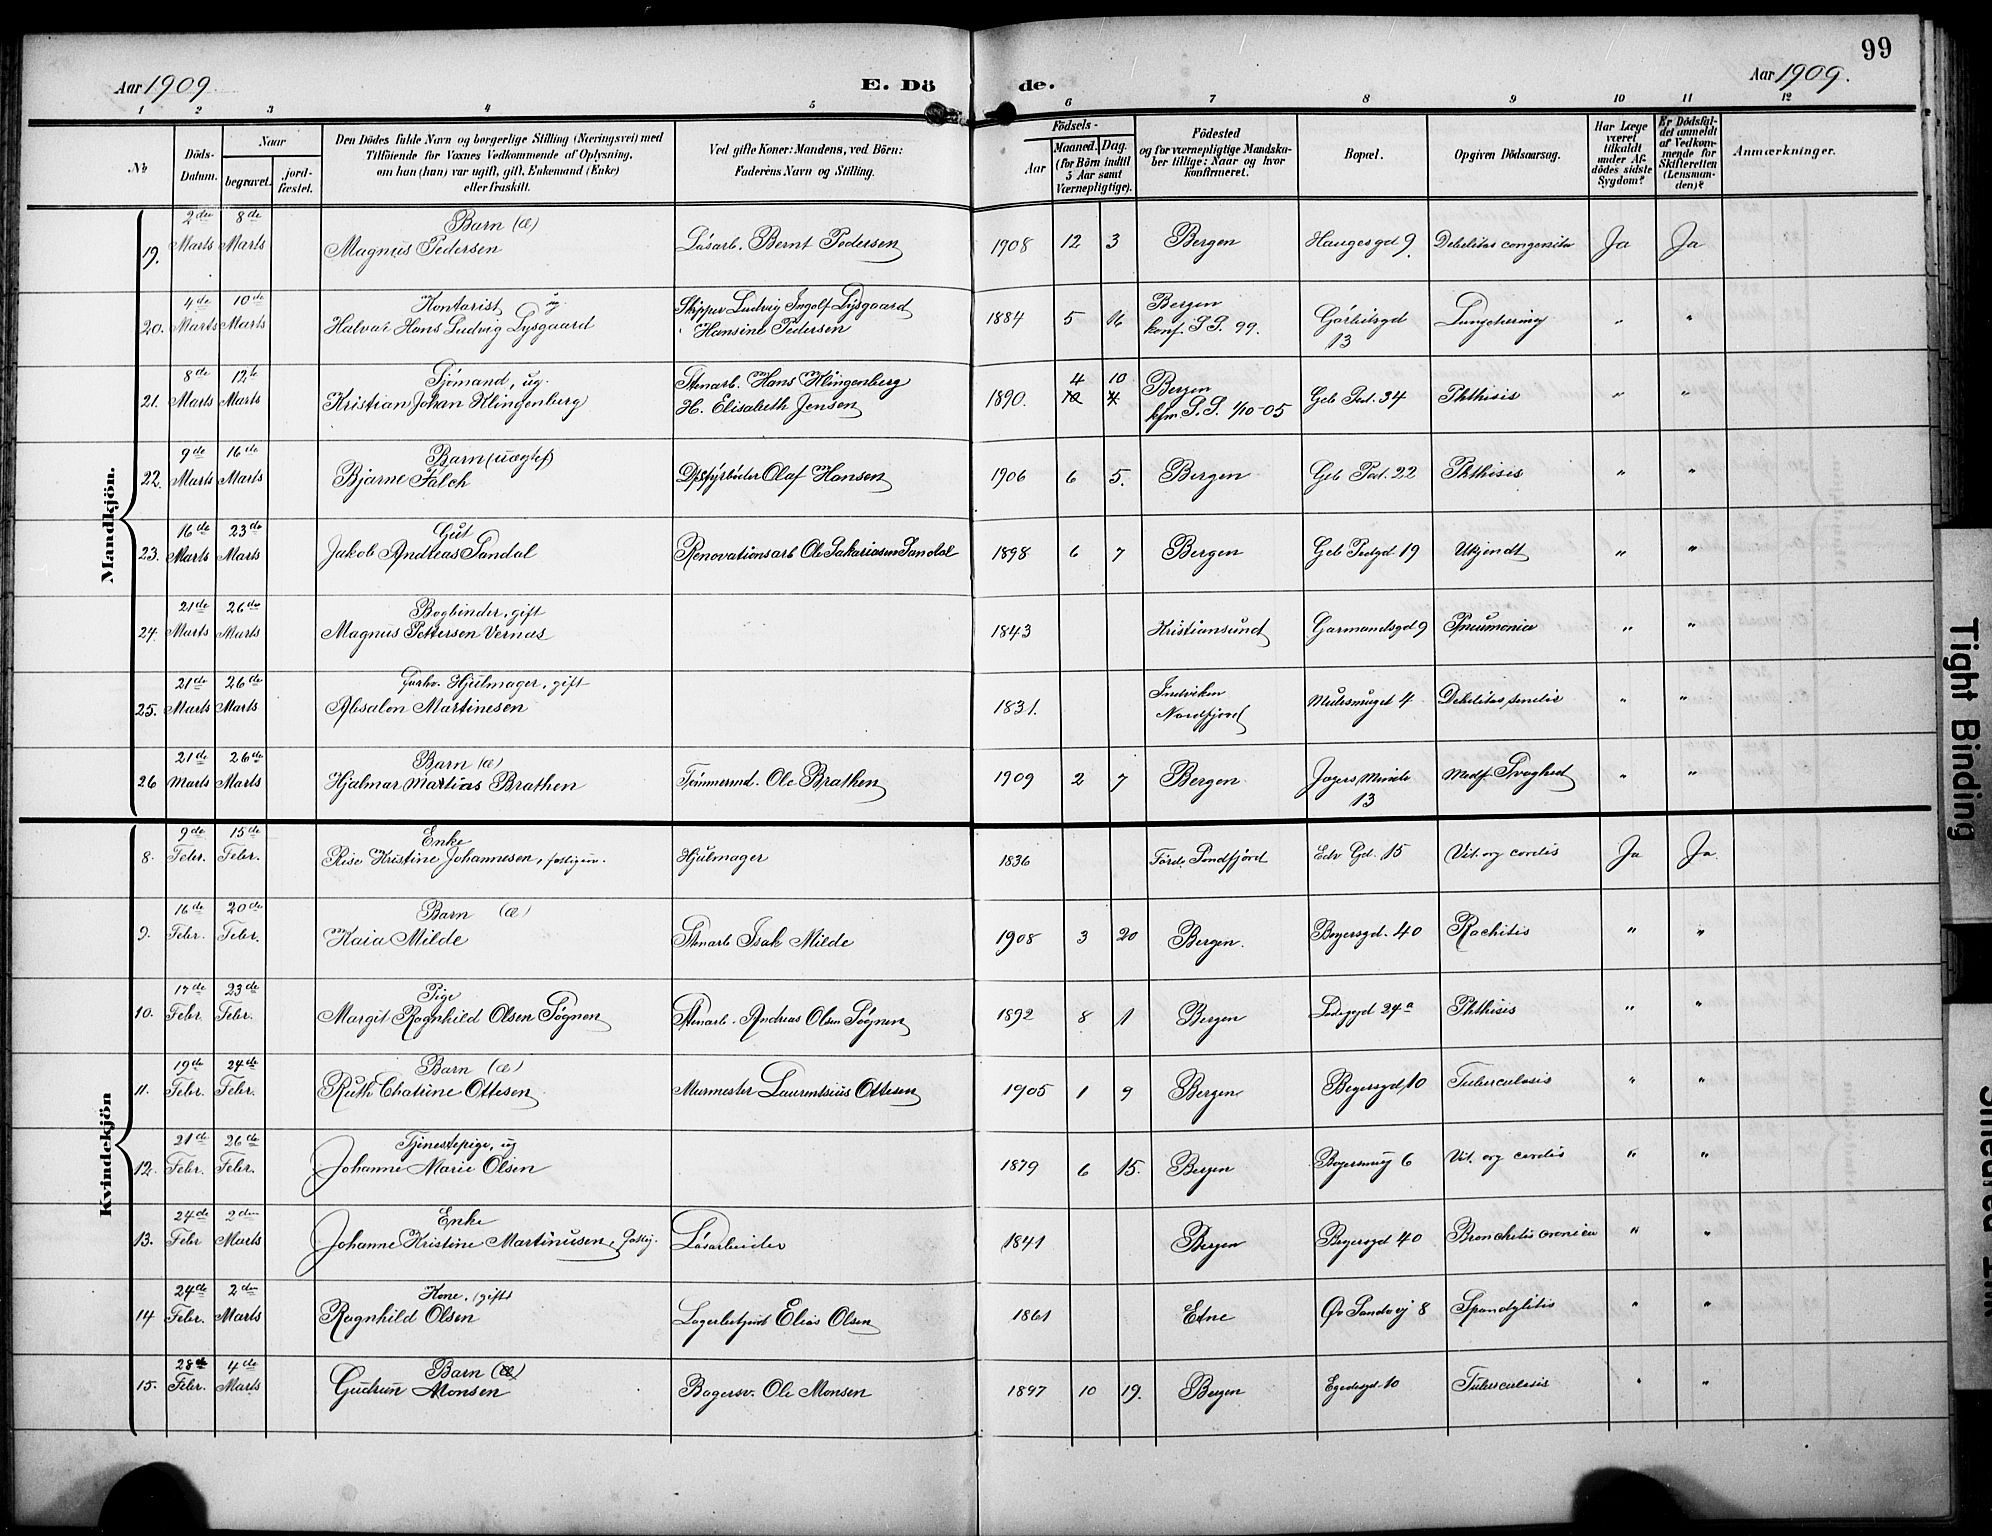 99
Aar 1909
E. Dö
de.
Aar 1909.
1 2 3 4 5 6 7 8 9 10 11 12
No
Döds-Datum.
Naar
begravet.
jord-fæstet.
Den Dödes fulde Navn og borgerlige Stilling (Næringsvei) med
Tilföiende for Voxnes Vedkommende af Oplysning,
om han (hun) var ugift, gift, Enkemand (Enke)
eller fraskilt.
Ved gifte Koner: Mandens, ved Börn:
Faderens Navn og Stilling.
Födsels-
Aar
Maaned. Dag.
(for Börn indtil
5 Aar samt
Værnepligtige).
Födested
og for værnepligtige Mandska-
ber tillige: Naar og hvor
konfirmeret.
Bopæl.
Opgiven Dödsaarsag.
Har Læge
været
tilkaldt
under Af-
dödes sidste
Sygdom?
Er Dödsfal-
det anmeldt
af Vedkom-
mende for
Skifteretten
(Lensman-
den)?
Anmærkninger.
Mandkjön.
2den 8de Barn (æ)
19. Marts Marts Magnus Pedersen Løsarb. Bernt Pedersen 1908 12 3 Bergen Haugesgd 9. Debilitas congenita Ja Ja
4de 10de Kontorist ug. Skipper Ludvig Ingolf Lysgaard Bergen
20. Marts Marts Hans Ludvig Lysgaard Hansine Pedersen 1884 5 16 konf. 99. " "
13
8de 12te Sjømand, ug. Stenarb. Hans Klingenberg 4 10 Bergen
21. Marts Marts Kristian Johan Klingenberg H. Elisabeth Jensen 1890. 1/10-05 Geb Ped. 34 Phthisis " "
9de 16de Barn (uægte)
22. Marts Marts Bjarne Falch Olaf Hansen 1906 6 5. Bergen Geb Ped. 22 Phthisis " "
16de 23de Gut
23. Marts Marts Jakob Andreas Sandal Renovationsarb Ole Sakariasen Sandal 1898 6 7 Bergen Geb Pedgd 19 Ukjendt " "
21de 26de Bogbinder, gift
24. Marts Marts Magnus Pettersen Vernas 1843 Kristiansund Garmandsgd 9 Pneumonia " "
21de 26de Hjulmager, gift Indviken
25. Marts Marts Absalon Martinesen 1831. Nordfjord Mulesmuget 4 Debilitas senilis " "
21de 26de Barn (æ)
26 Marts Marts Hjalmar Mathias Brathen Tømmermd. Ole Brathen 1909 2 7 Bergen Jægers Minde Medf. Svaghed " "
13
Kvindekjön
9de 15de Enke
8. Febr. Febr. Kristine Johannesen, Hjulmager 1836 Førde Søndfjord Edv Gd. 15 Vit. org cordis Ja Ja.
16de 20de Barn (æ)
9. Febr. Febr. Kaia Milde Stenarb Isak Milde 1908 3 20 Bergen. Bøyersgd. 40 Rachitis " "
17de 23de Pige
10. Febr. Febr. Margit Ragnhild Olsen Søgnen Stenarb. Andreas Olsen Søgnen 1892 8 1 Bergen 24a Phthisis " "
19de 24de Barn (æ)
11. Febr. Febr. Ruth Chatrine Ottesen Murmester Laurentsius Ottesen 1905 1 9 Bergen Bøyersgd, 10 Tuberculosis " "
21de 26de Tjenestepige, ug
12. Febr. Febr. Johanne Marie Olsen 1879 6 15. Bergen Bøyersmug 6 Vit. org cordis " "
24de 2den Enke
13. Febr Marts Johanne Kristine Martinusen, Løsarbeider 1841 Bergen Bøyersgd 40 Bronchitis cronica " "
24de 2den Kone, (gift)
14 Febr. Marts Ragnhild Olsen Lagerbetjent Elias Olsen 1861 Etne Øv Sandvej 8 Spondylitis " "
28de 4de Barn (æ)
15. Febr. Marts Gudrun Monsen Bagersv. Ole Monsen 1897 10 19. Bergen Egedesgd 10 Tuberculosis " "
Tight Binding
Smeared Ink